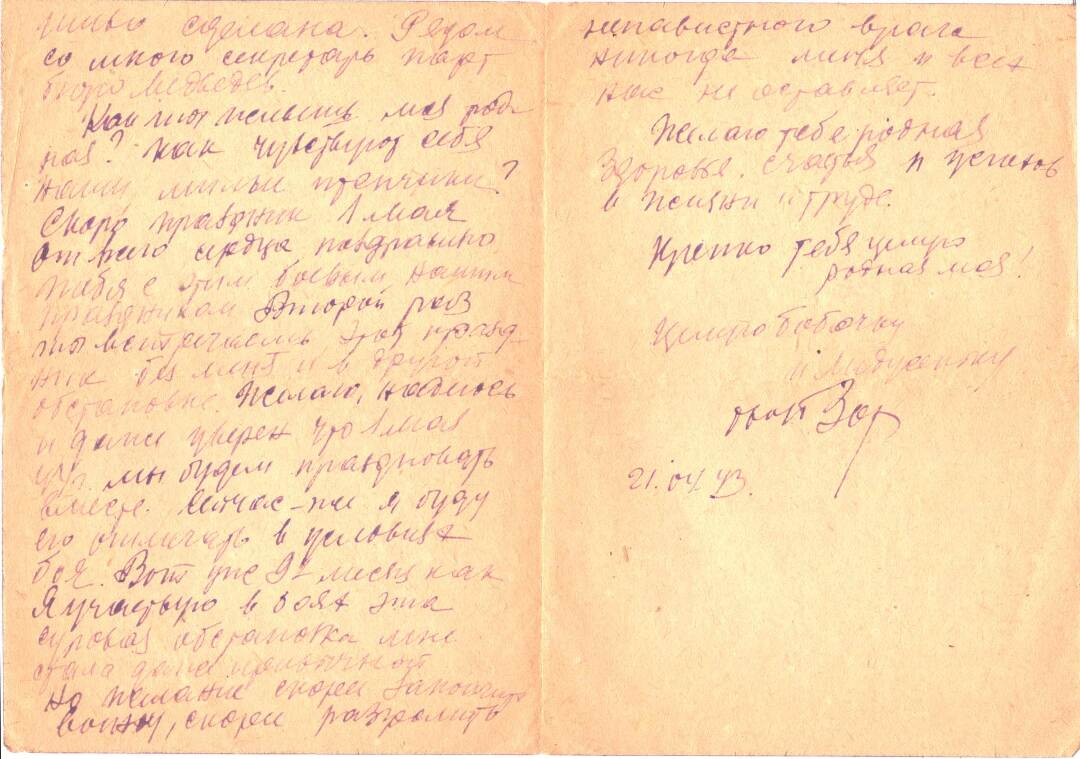 сделана. Рядом
со мною секретарь парт
бюро Медведев.
Как ты живешь моя род
ная? Как чувствуют себя
наши милые птенчики?
Скоро праздник 1 мая
От всего сердца поздравляю
тебя с этим боевым нашим
праздником Второй раз
ты встречаешь этот празд-
ник без меня и в другой
обстановке. Желаю, надеюсь
и даже уверен что 1 мая
44 г. мы будем праздновать
вместе. Сейчас-же я буду
его отмечать в условиях
боя. Вот уже 9й месяц как
Я участвую в боях эта
суровая обстановка мне
стала даже привычной
но желание скорей закончить
войну, скорей разгромить
ненавистного врага
никогда меня и всех
нас не оставляет.
Желаю тебе родная
Здоровья. Счастья и успехов
в жизни и труде.
Крепко тебя целую
родная моя!
Целую
и
твой
21.04.43.